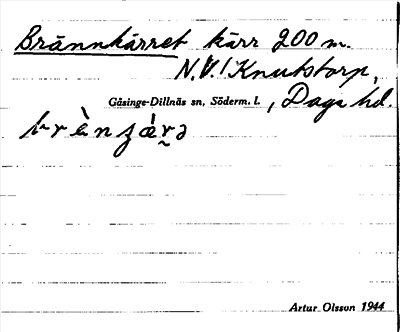 Brännkärret kärr 200 m.
N.V. Knutstorp,
Gåsinge-Dillnäs sn, Söderm. l., Daga hd.
Artur Olsson 1944